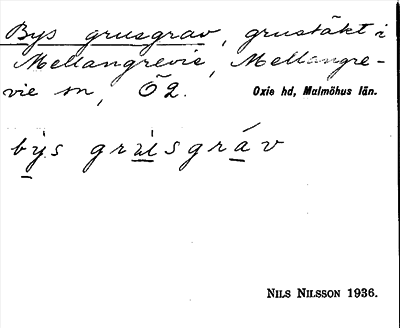 Bys grusgrav, grustäkt i
Mellangrevie, Mellangre-
vie sn, Ö2. Oxie hd, Malmöhus län.
bys grusgráv
NILS NILSSON 1936.